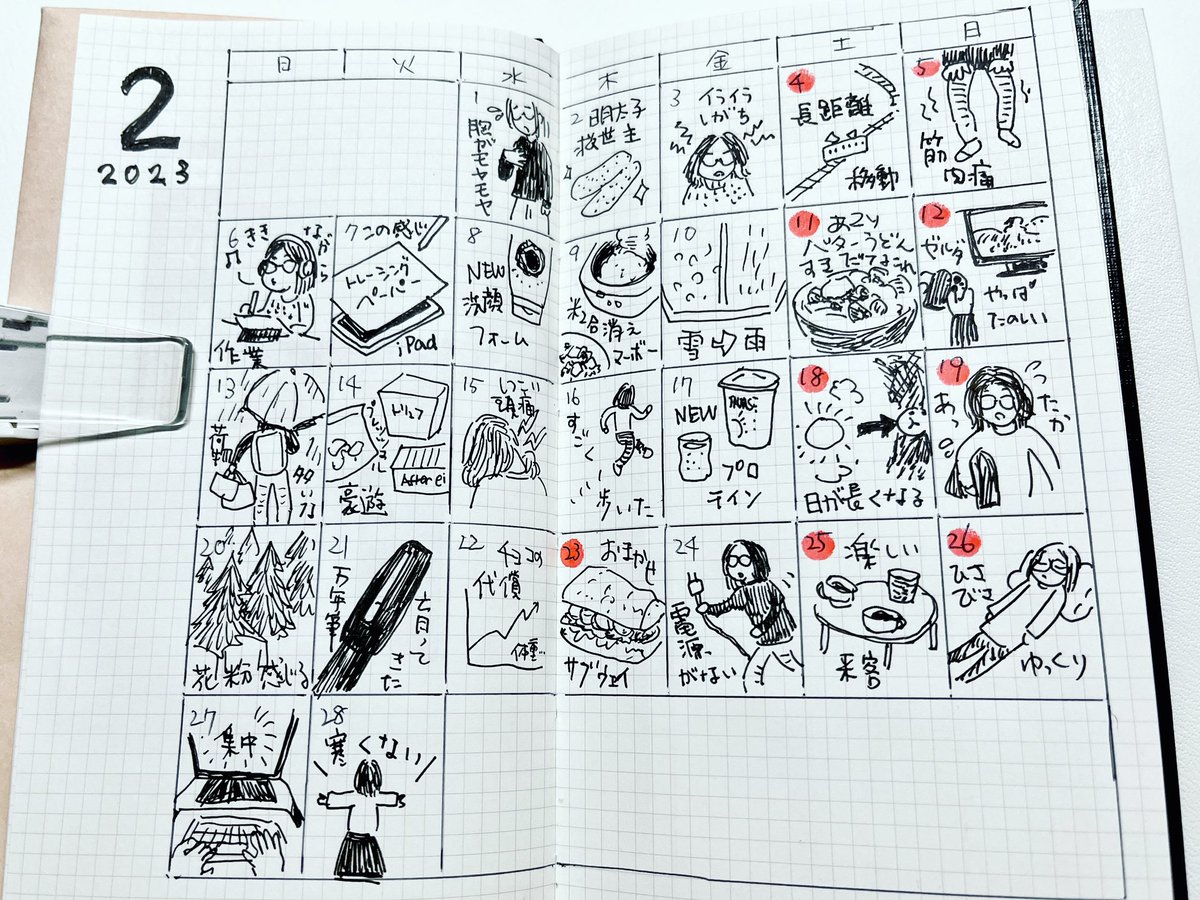 2
2023
日 火 水 木 金 土 日
1
胸がモヤモヤ
2 明太子
救世主
3 イライラ
しがち
4
長距離
移動
5
筋
肉痛
6 ききながら
作業
7 この感じ
トレーシング
ペーパー
iPad
8
NEW
洗顔
フォーム
9
米2合消え
マーボー
10
雪⇨雨
11
バターうどん
12
ゼルダ
やっぱ
たのしい
13
荷物
多いな
14
After ei
豪遊
15 しつこい
頭痛
16
すごく
歩いた
17
NEW
プロ
テイン
18
日が長くなる
19
あったか
20
花粉感じる
21
万年筆
育ってきた
22 チョコの
代償
体重
23 おまかせ
サブウェイ
24
電源
がない
25 楽しい
来客
26
ひさ
びさ
ゆっくり
27
集中
28
寒くない